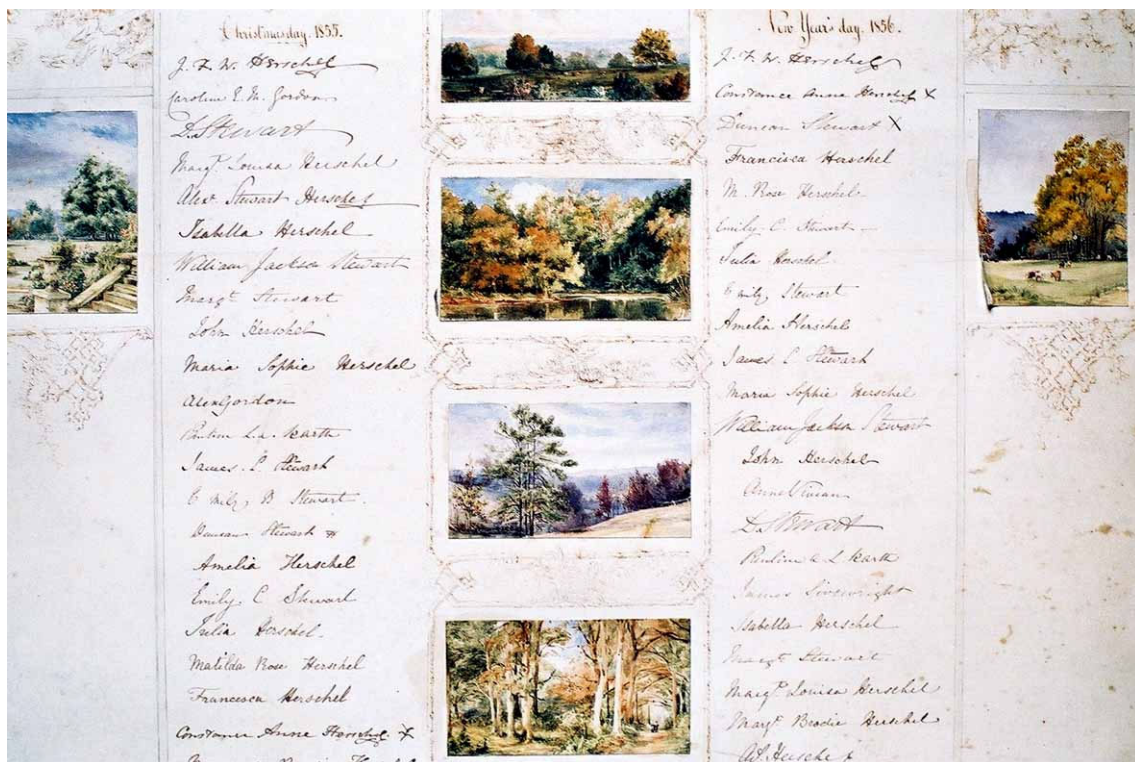 Christmas day. 1855.
J. F. W. Herschel
Caroline E. M. Gordon
D. Stewart
Margt. Louisa Herschel
Alexr Stewart Herschel
Isabella Herschel
William Jackson Stewart
Margt Stewart
John Herschel
Maria Sophie Herschel
Alex Gordon
Pauline L. a. Karth
James. C Stewart
Emily B Stewart.
Duncan Stewart
Amelia Herschel
Emily. C Stewart
Julia Herschel.
Matilda Rose Herschel
Francesca Herschel
Constance Anne Herschel X
New Year's day. 1856.
J. F. W. Herschel
Constance Anne Herschel X
Duncan Stewart X
Francisca Herschel
M. Rose Herschel
Emily. C. Stewart
Julia Herschel.
Emily Stewart
Amelia Herschel
James. C Stewart
Maria Sophie Herschel
William Jackson Stewart
John Herschel
Anne Vivian
D. Stewart
Pauline a L Karth
James Sivewright
Isabella Herschel
Margt Stewart
Margt. Louisa Herschel
Margt. Brodie Herschel
AS. Herschel